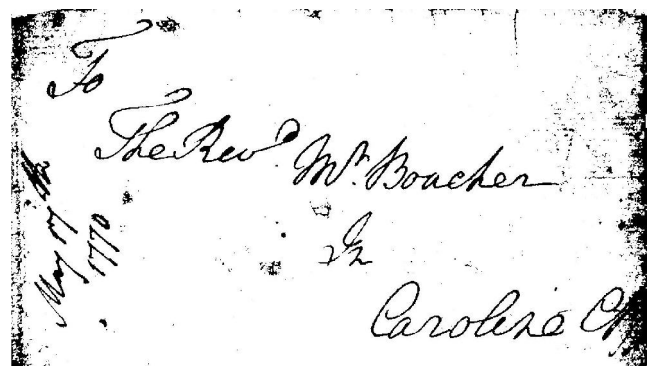 To
The Revd Mr. Boucher
In
Caroline Cty
May 17th
1770